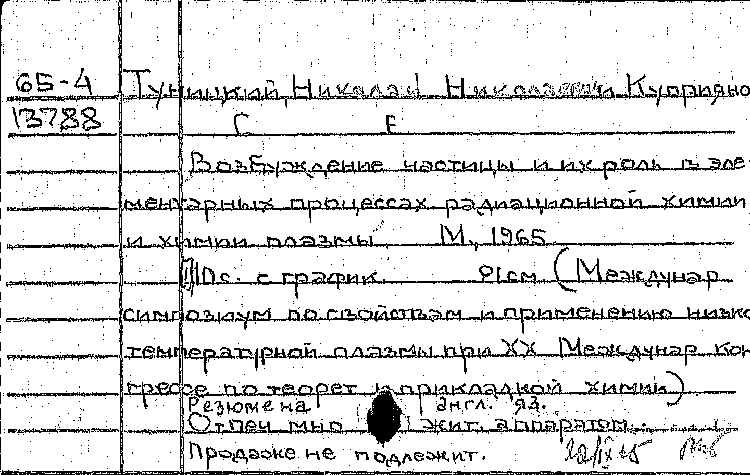 65-4 Туницкий, Николай Николаевич и Куприяно
13788 С Е
Возбуждение частицы и их роль в эле
ментарных процессах радиационной химии
и химии плазмы М., 1965
с. с график. 21см (Междунар
симпозиум по свойствам и применению низко
температурной плазмы при XX Междунар кон
грессе по теорет и прикладной химии)
Резюме на англ. яз.
Отпеч мно жит. аппаратом.
Продаже не подлежит.